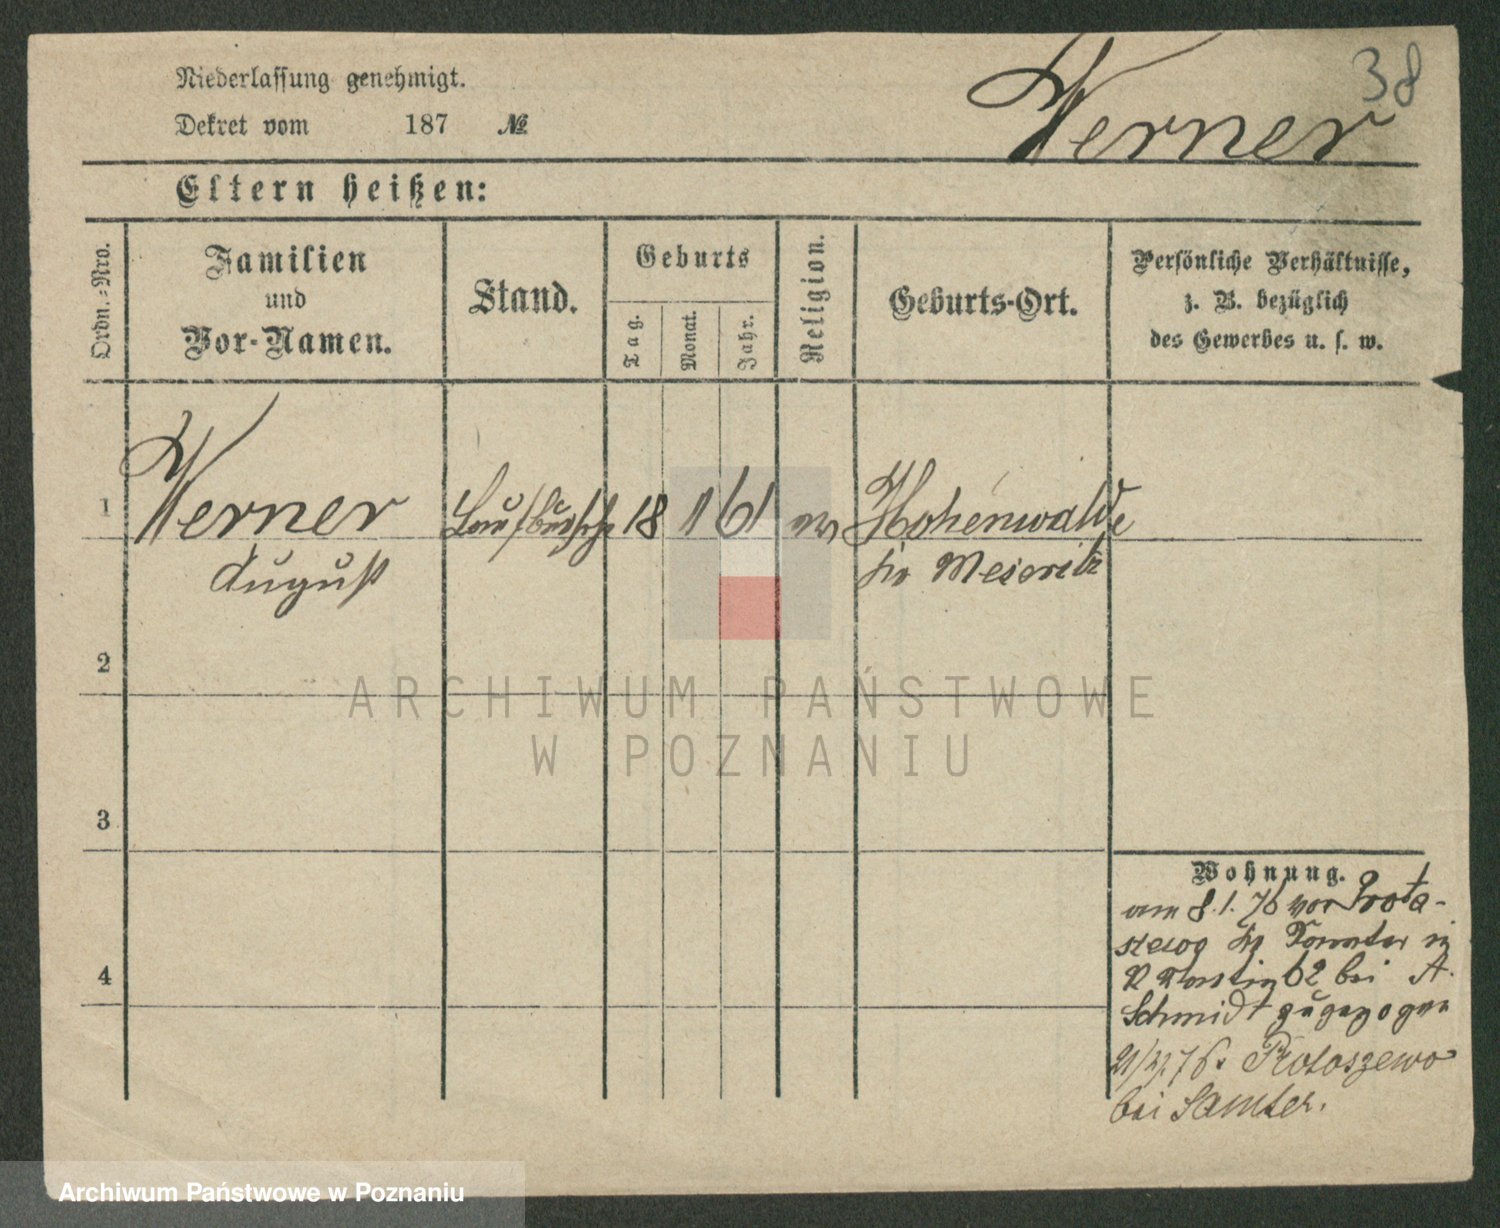 38
Niederlassung genehmigt.
Dekret vom 187 №
Werner
Eltern heißen:
Ordn.-Nro.
Familien
und
Vor-Namen.
Stand.
Geburts
Tag.
Monat.
Jahr.
Religion.
Geburts-Ort.
Persönliche Verhältnisse,
z. B. bezüglich
des Gewerbes u. s. w.
1 Werner Laufbursche 18 61 Hohenwalde
August Kr Meseritz
2
ARCHIWUM PAŃSTWOWE
W POZNANIU
3
Wohnung.
am 8.1.76 von Prota-
szewo Kr Samter in
62 bei A.
Schmidt zugezogen
76. Protoszewo
bei Samter.
4
Archiwum Państwowe w Poznaniu